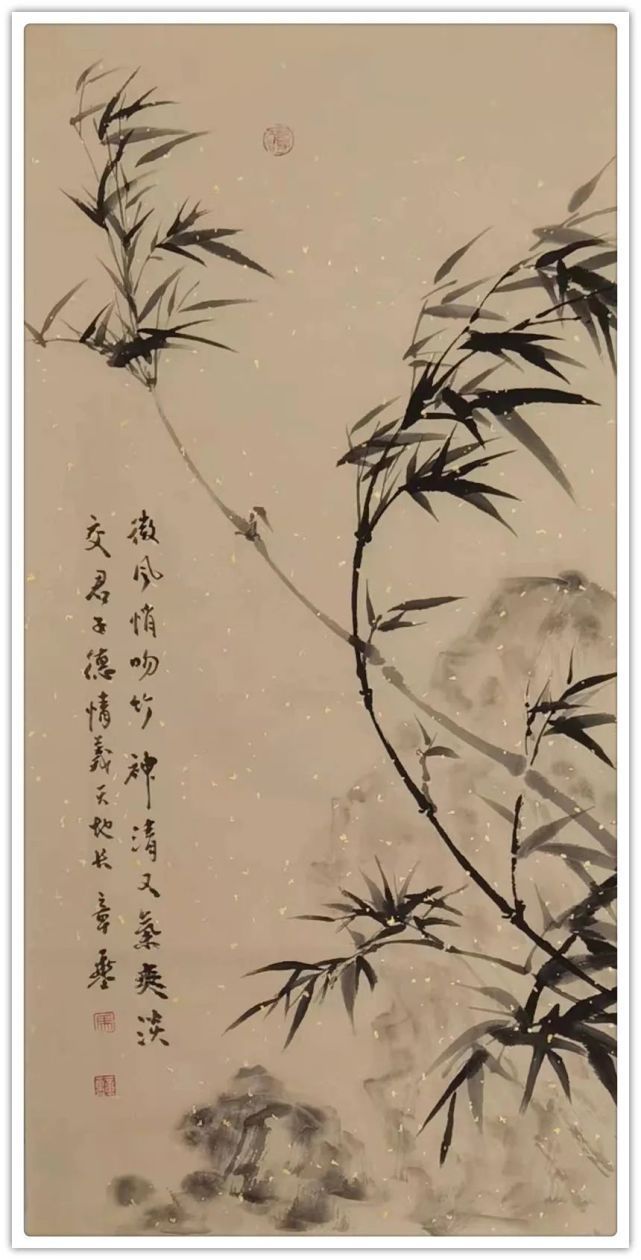 微风悄吻竹神清又氣爽淡
交君子德情義天地长章